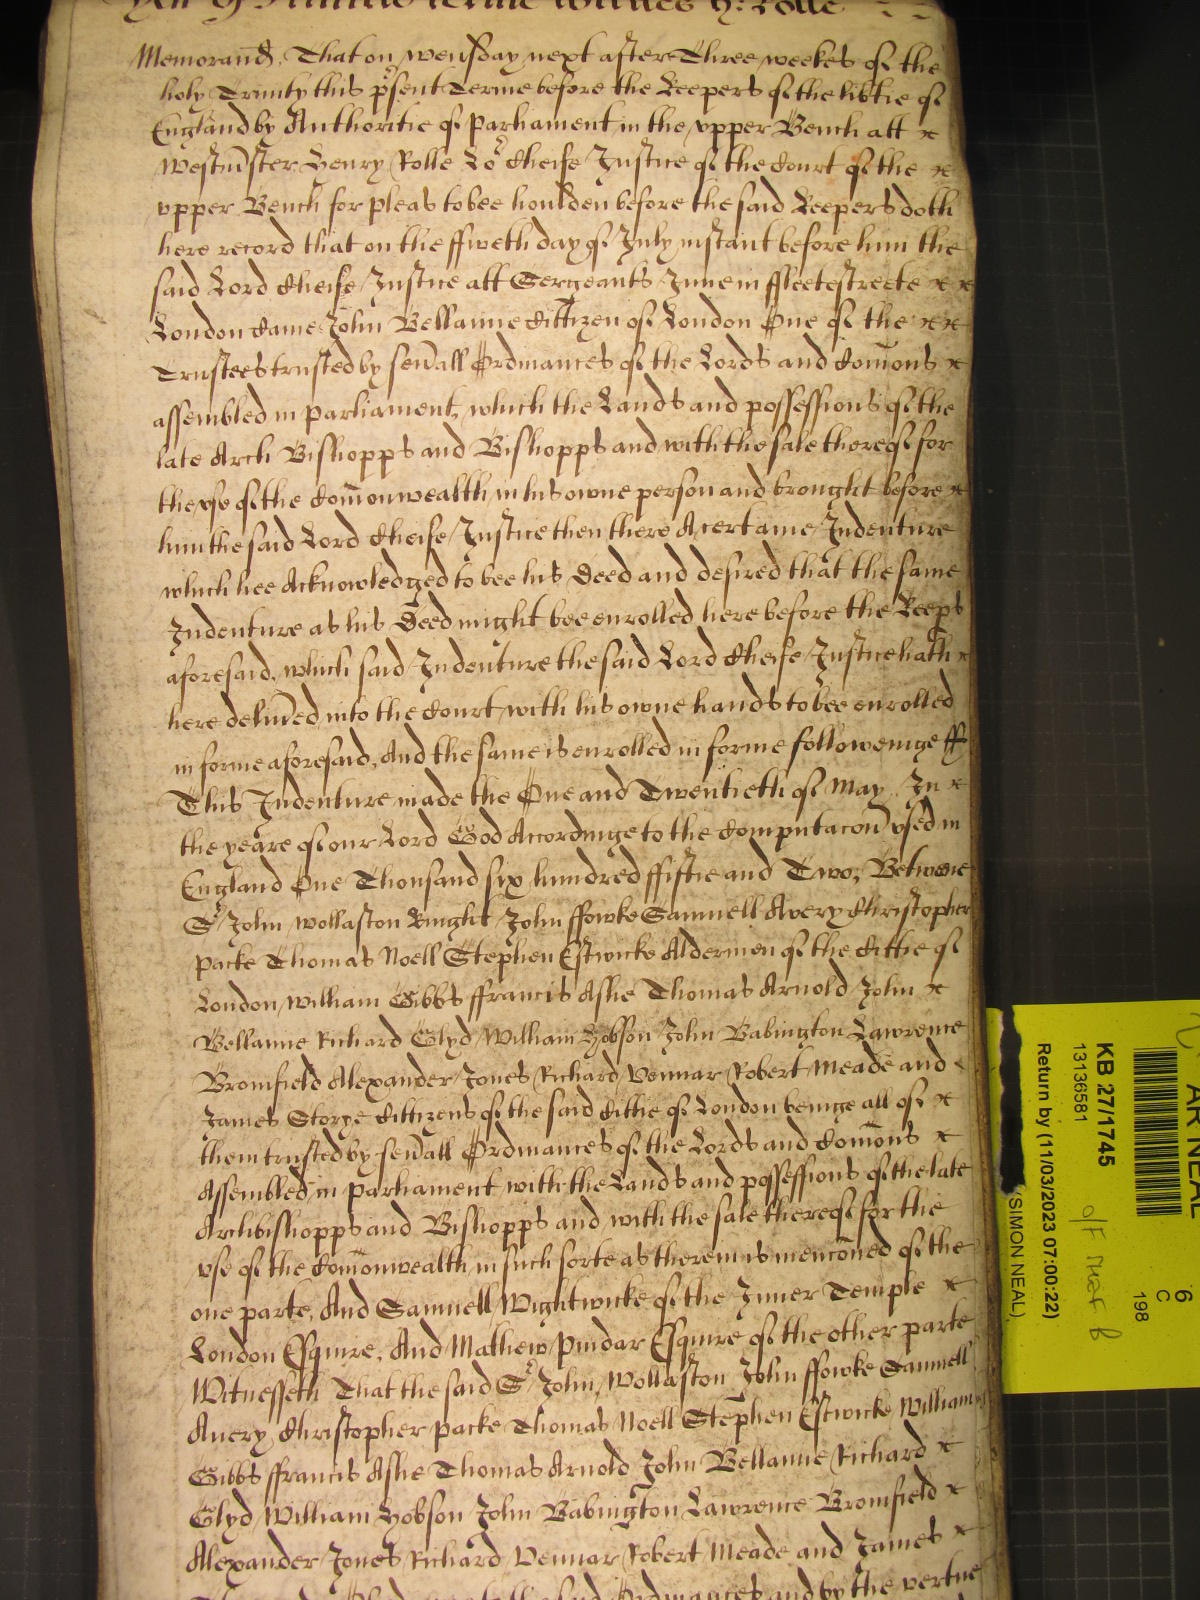 Memorand. That on wensday next after Three weekes of the
holy Trinity this psent Terme before the Keepers of the libtie of
England by Authoritie of Parliament in the upper Bench att
Westmster Henry Rolle Lo: Cheife Justice of the Court of the
upper Bench for pleas to bee houlden before the said Keepers doth
here record that on the ffiveth day of July instant before him the
said Lord Cheife Justice att Sergeants Inne in ffleetestreete
London Came John Bellamie Cittizen of London One of the
Trustees trusted by sevall Ordinances of the Lords and Comons
assembled in Parliament, which the Lands and possessions of the
late Arch Bishopps and Bishopps and with the sale thereof for
the use of the Comonwealth in his owne person and brought before
him the said Lord Cheife Justice then there A certaine Indenture
which hee Acknowledged to bee his Deed and desired that the same
Indenture as his Deed might bee enrolled here before the Keeps
aforesaid, which said Indenture the said Lord Cheife Justice hath
here delived into the Court with his owne hands to bee enrolled
in forme aforesaid, And the same is enrolled in forme followeinge ff
This Indenture made the One and Twentieth of May In
the yeare of our Lord God Accordinge to the Computacon used in
England One Thousand six hundred ffiftie and Two, Betweene
Sr John Wollaston Knight John ffowke Samuell Avery Christopher
Packe Thomas Noell Stephen Estwicke Aldermen of the Cittie of
London William Gibbs ffrancis Ashe Thomas Arnold John
Bellamie Richard Glyd William Hobson John Babington Lawrence
Bromfield Alexander Jones Richard Vennar Robert Meade and
James Storye Cittizens of the said Cittie of London beinge all of
them trusted by sevall Ordinances of the Lords and Comons
Assembled in Parliament with the Lands and possessions of the late
Archbishopps and Bishopps and with the sale thereof for the
use of the Comonwealth in such sorte as therein is mencioned of the
one parte, And Samuell Wightwicke of the Inner Temple
London Esquire, And Mathew Pindar Esquire of the other parte
Witnesseth That the said Sr John Wollaston John ffowke Samuell
Avery Christopher Packe Thomas Noell Stephen Estwicke William
Gibbs ffrancis Ashe Thomas Arnold John Bellamie Richard
Glyd William Hobson John Babington Lawrence Bromfield
Alexander Jones Richard Vennar Robert Meade and James
Ordinances and by the vertue
AR NEAL
KB 27/1745
13136581
Return by (11/03/2023 07:00:22)
(SIMON NEAL)
6
C
198